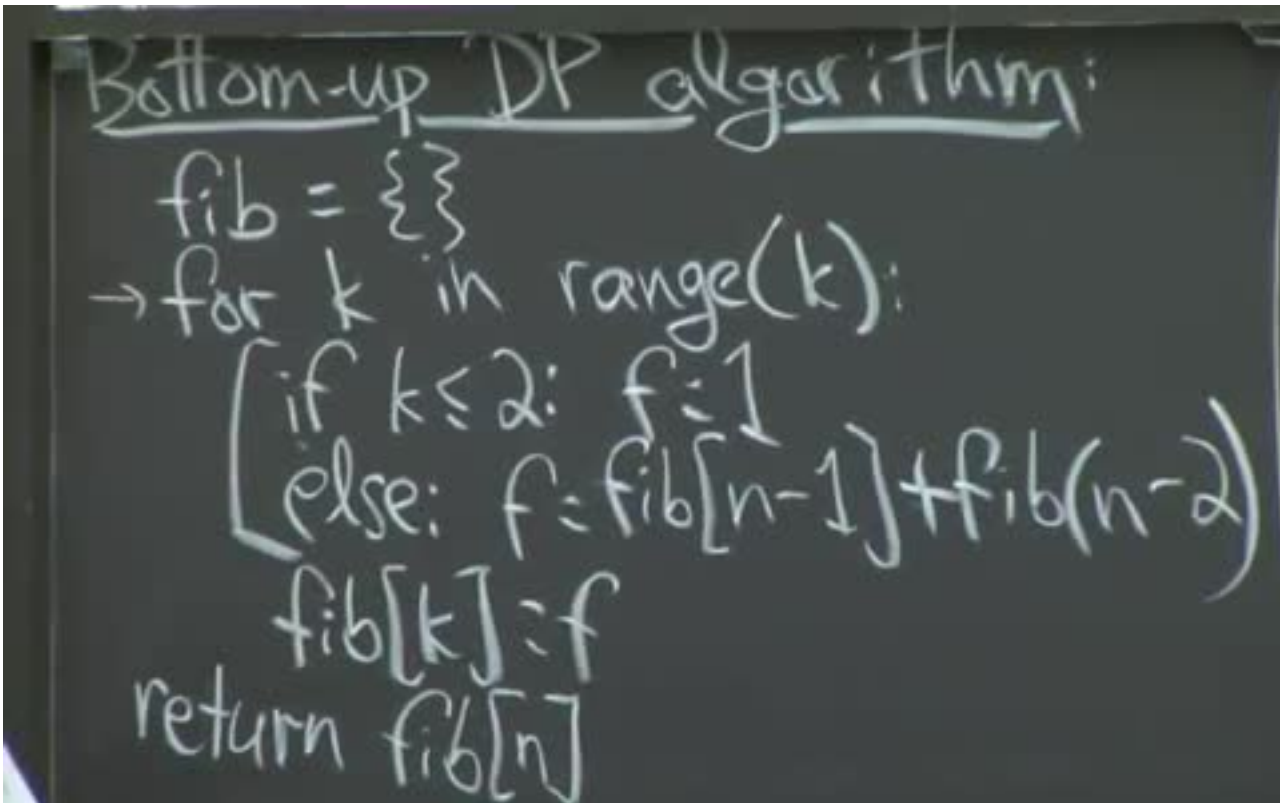 Bottom-up DP algorithm:
fib = {}
→for k in range(k):
if k≤2: f=1
else: f=fib[n-1]+fib(n-2)
fib[k]=f
return fib[n]